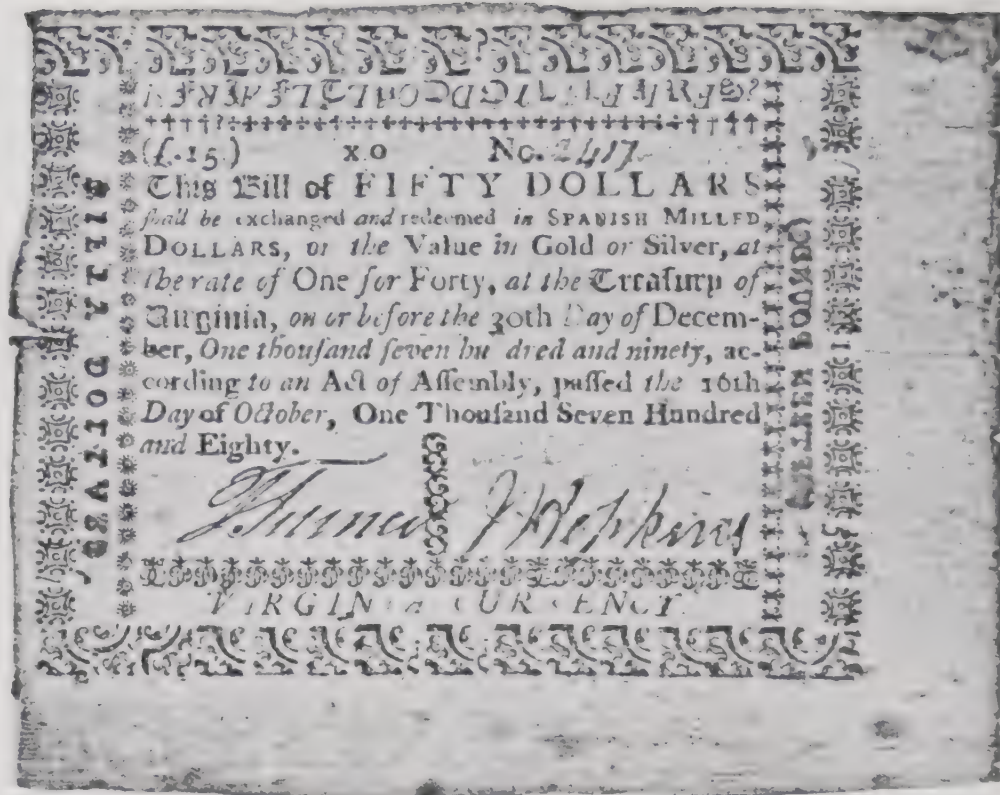 DEATH TO COUNTERFEIT
(£.15.) x.o No. 2417
This Bill of FIFTY DOLLARS
ſhall be exchanged and redeemed in SPANISH MILLED
DOLLARS, or the Value in Gold or Silver, at
the rate of One for Forty, at the Treaſury of
Virginia, on or before the 30th Day of Decem-
ber, One thouſand ſeven hu dred and ninety, ac-
cording to an Act of Aſſembly, paſſed the 16th
Day of October, One Thouſand Seven Hundred
and Eighty.
J Hopkins
VIRGINIA CURRENCY.
FIFTY DOLLARS
(FIFTEEN POUNDS)